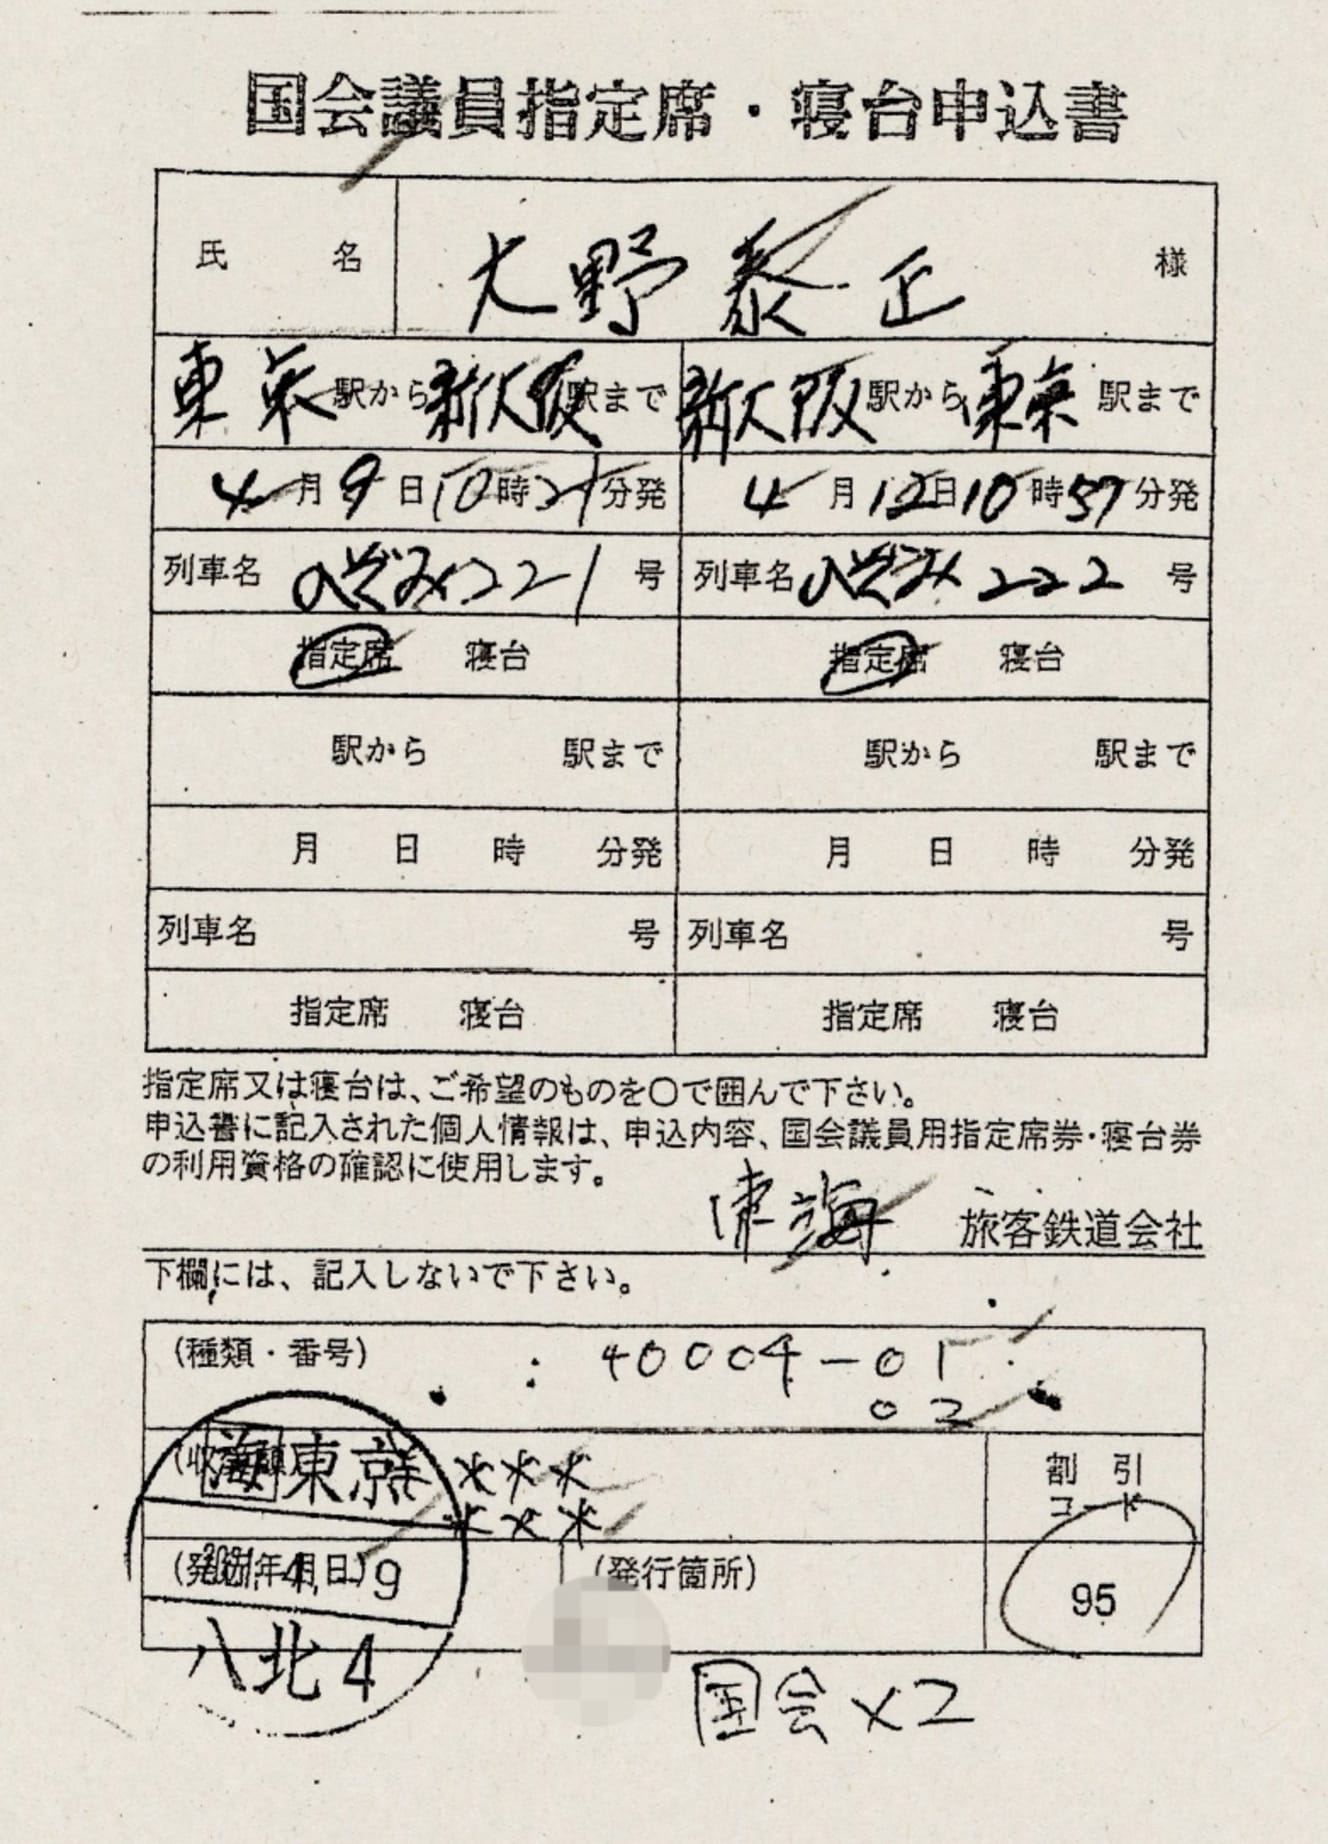 国会議員指定席・寝台申込書
氏 名 大野泰正 様
東京駅から新大阪駅まで 新大阪駅から東京駅まで
4月9日10時21分発 4月12日10時57分発
列車名 のぞみ221号 列車名 のぞみ222号
指定席 寝台 指定席 寝台
駅から 駅まで 駅から 駅まで
月 日 時 分発 月 日 時 分発
列車名 号 列車名 号
指定席 寝台 指定席 寝台
指定席又は寝台は、ご希望のものを○で囲んで下さい。
申込書に記入された個人情報は、申込内容、国会議員用指定席券・寝台券
の利用資格の確認に使用します。
東海 旅客鉄道会社
下欄には、記入しないで下さい。
(種類・番号) : 40004-01
02
海東京 ***
***
割引
コード
(発行年月日) 2021.4.-9 (発行箇所) 95
八北4
国会×2